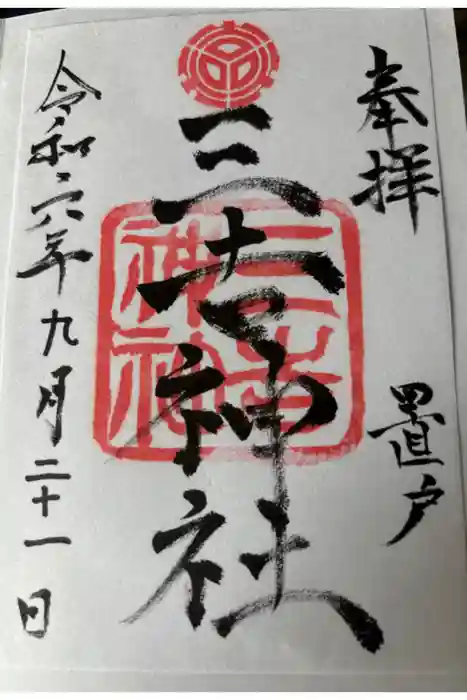 奉拝
置戸
三吉神社
三吉神社
令和六年九月二十一日